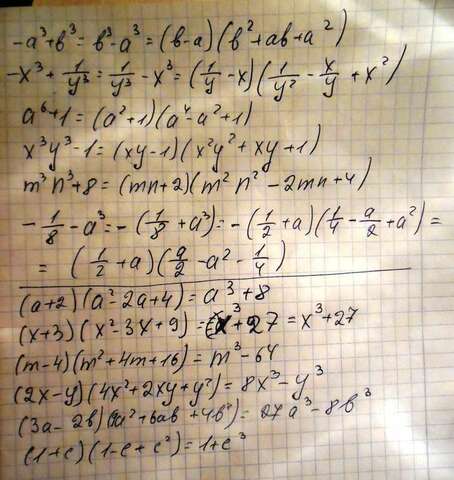 -a³+b³= b³-a³ =(b-a)(b²+ab+a²)
-x³+1/y³=1/y³-x³=(1/y-x)(1/y²-x/y+x²)
a⁶+1=(a²+1)(a⁴-a²+1)
x³y³-1=(xy-1)(x²y²+xy+1)
m³n³+8=(mn+2)(m²n²-2mn+4)
-1/8-a³=-(1/8+a³)=-(1/2+a)(1/4-a/2+a²)=
=(1/2+a)(a/2-a²-1/4)
(a+2)(a²-2a+4)=a³+8
(x+3)(x²-3x+9)=x³+27=x³+27
(m-4)(m²+4m+16)=m³-64
(2x-y)(4x²+2xy+y²)=8x³-y³
(3a-2b)(9a²+6ab+4b²)=27a³-8b³
(1+c)(1-c+c²)=1+c³